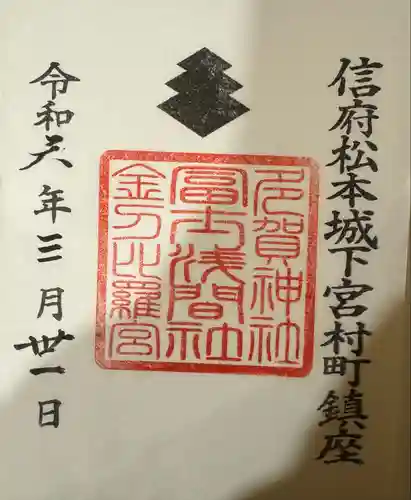 信府松本城下宮村町鎮座
多賀神社
富士浅間社
金刀比羅宮
令和六年三月丗一日